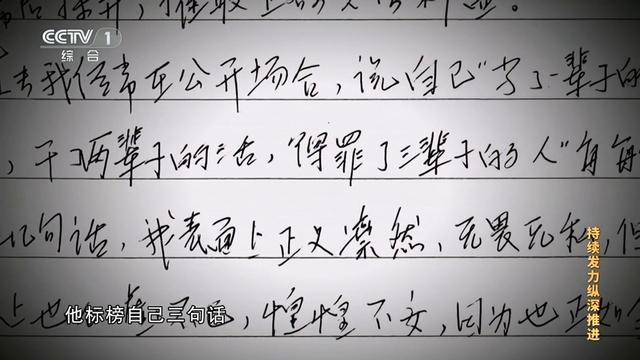 CCTV 1
综合
去我经常在公开场合，说自己“了一辈子的
，干了两辈子的活，“得罪了三辈子的人”每每
几句话，我表面上正义凛然，无畏无私，但
上也 惶惶不安，因为也正如
他标榜自己三句话
持续发力纵深推进